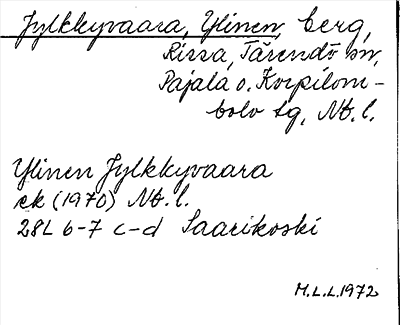 Jylkkyvaara, Ylinen, berg,
Rissa, Tärendö sn,
Pajala o. Korpilom-
bolo tg, Nb. l.
Ylinen Jylkkyvaara
ek (1970) Nb. l.
28L 6-7 c-d Saarikoski
M.L.L.1972